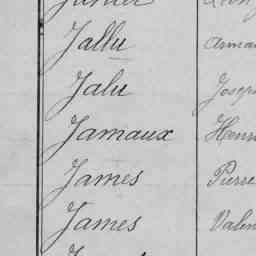 Jallu Arma
Jalu Josep
Jamaux Henr
James Pierre
James Valen